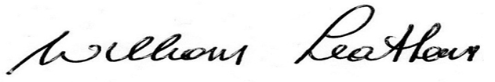 William Leathem